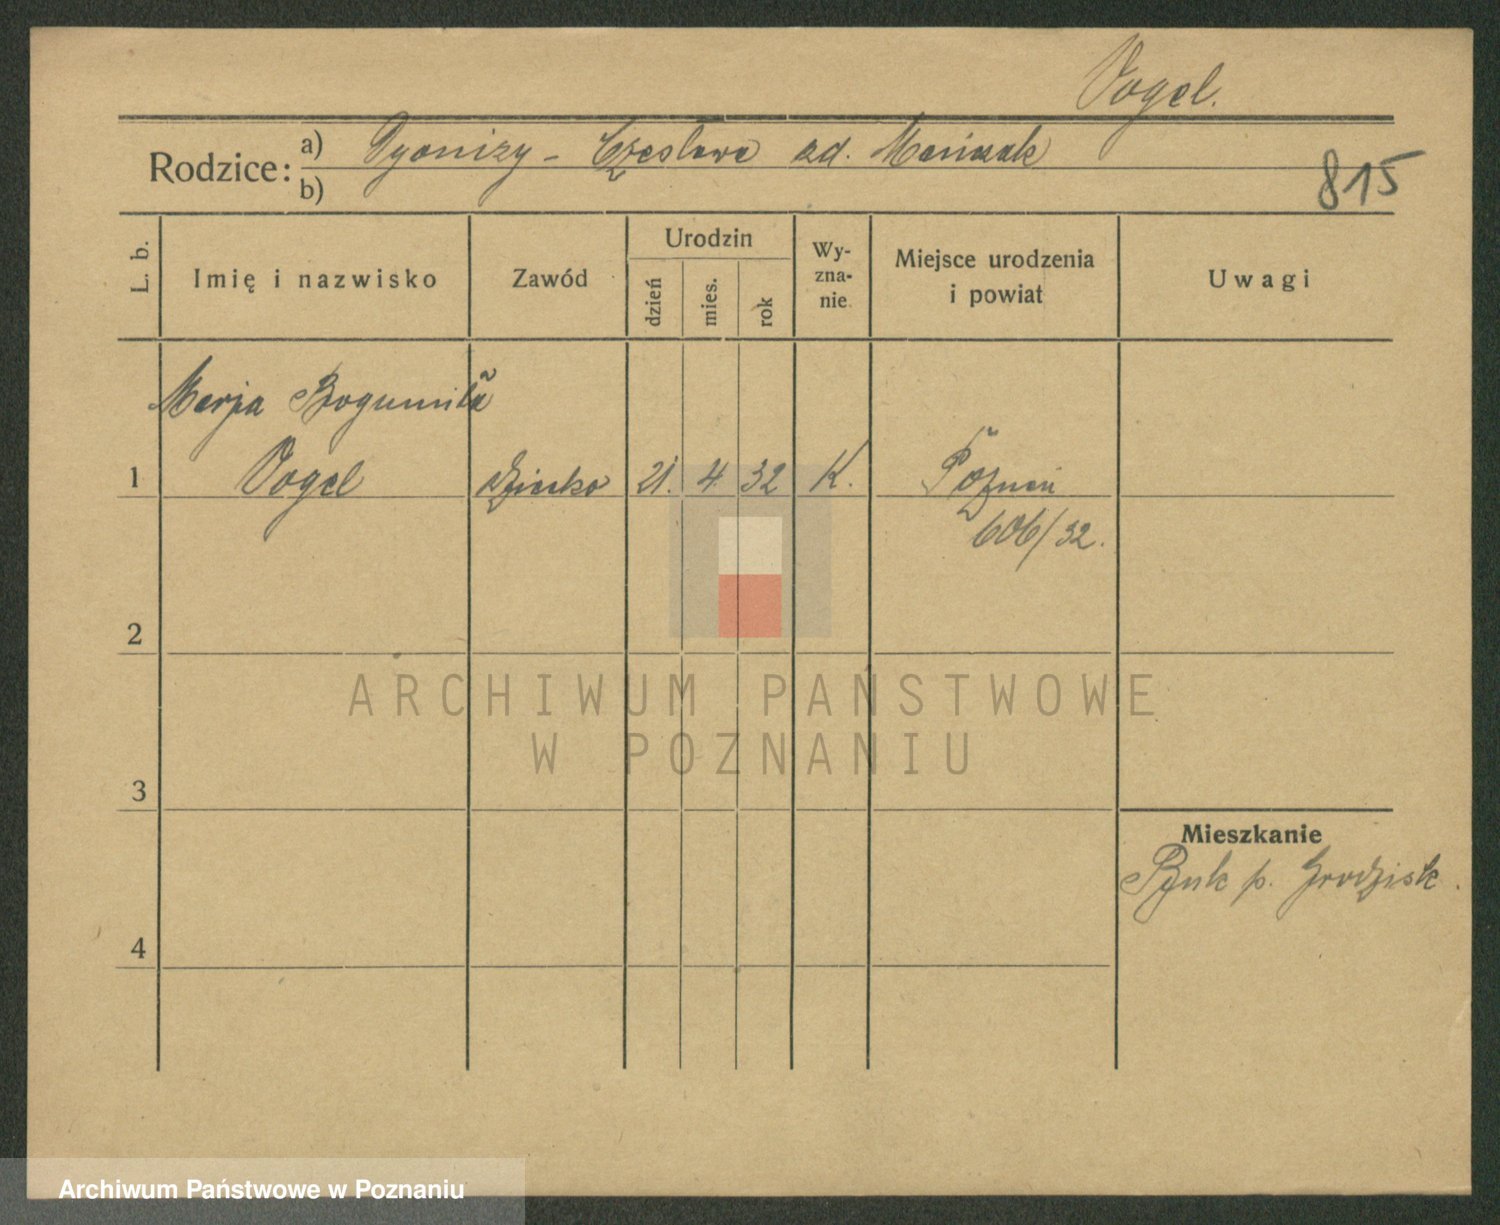 Vogel.
Rodzice: a) Dyonizy - Czesława zd. Marciniak
b)
815
L. b.
Imię i nazwisko
Zawód
Urodzin
dzień
mies.
rok
Wy-
zna-
nie
Miejsce urodzenia
i powiat
Uwagi
Marja Bogumiła
1 Vogel dziecko 21. 4 32 K. Poznań
606/32.
2
ARCHIWUM PAŃSTWOWE
W POZNANIU
3
Mieszkanie
p. Grodzisk.
4
Archiwum Państwowe w Poznaniu